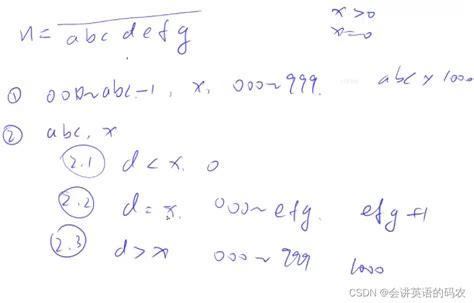 n = abcdefg
x>0
x=0
① 000~abc-1, x, 000~999. abc x 1000
② abc, x
2.1 d < x. 0
2.2 d = x. 000~efg. efg+1
2.3 d > x 000~999 1000
CSDN @会讲英语的码农